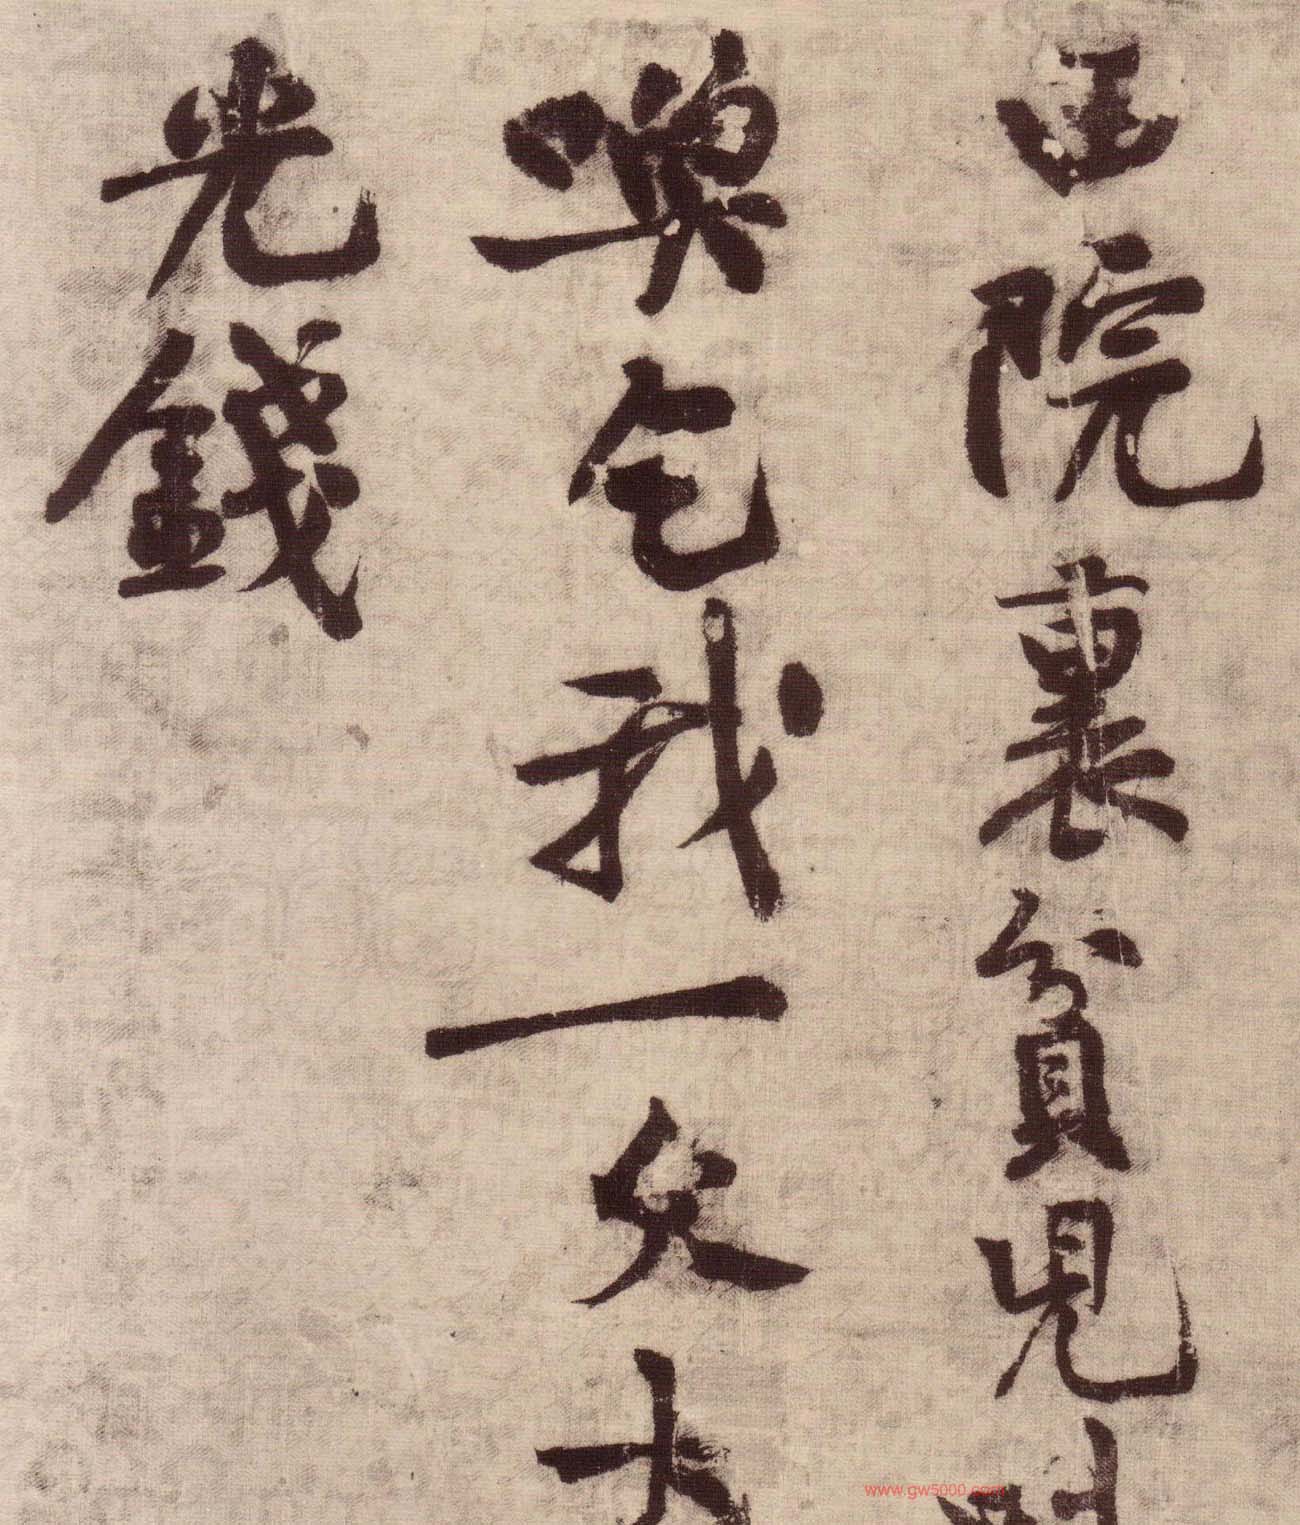 田院裏貧兒叫
喚乞我一文大
光錢
www.gw5000.com